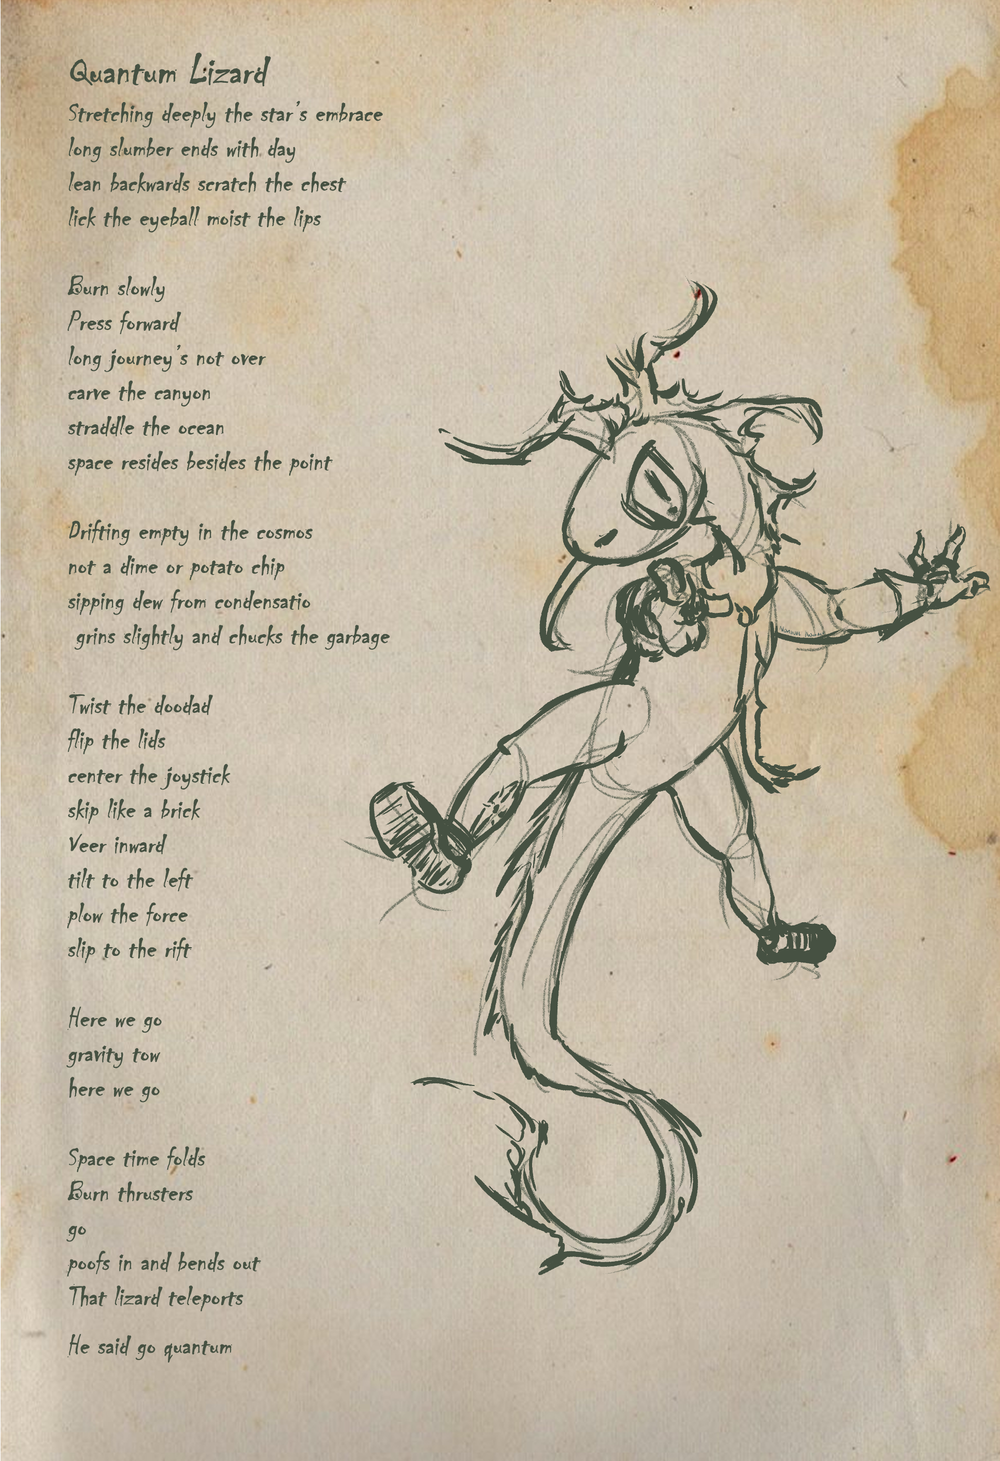 Quantum Lizard
Stretching deeply the star's embrace
long slumber ends with day
lean backwards scratch the chest
lick the eyeball moist the lips
Burn slowly
Press forward
long journey's not over
carve the canyon
straddle the ocean
space resides besides the point
Drifting empty in the cosmos
not a dime or potato chip
sipping dew from condensatio
grins slightly and chucks the garbage
Twist the doodad
flip the lids
center the joystick
skip like a brick
Veer inward
tilt to the left
plow the force
slip to the rift
Here we go
gravity tow
here we go
Space time folds
Burn thrusters
go
poofs in and bends out
That lizard teleports
He said go quantum